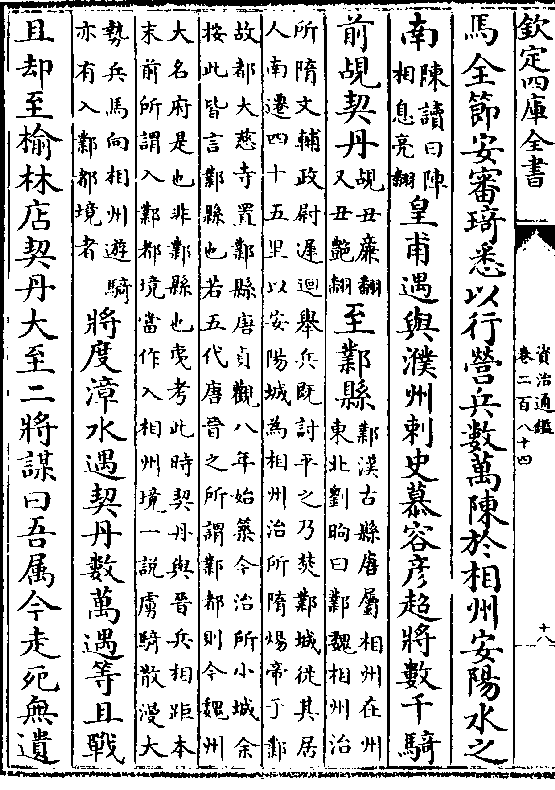 欽定四庫全書
資治通鑑
卷二百八十四
十八
馬全節安審琦悉以行營兵數萬陳於相州安陽水之
南陳讀曰陣
相息亮翻皇甫遇與濮州刺史慕容彦超將數千騎
前覘契丹覘丑廉翻
又丑艶翻至鄴縣鄴漢古縣唐屬相州在州
東北劉昫曰鄴魏相州治
所隋文輔政尉遲迥舉兵既討平之乃焚鄴城徙其居
人南遷四十五里以安陽城為相州治所隋煬帝于鄴
故都大慈寺置鄴縣唐貞觀八年始築今治所小城余
按此皆言鄴縣也若五代唐晉之所謂鄴都則今魏州
大名府是也非鄴縣也叓考此時契丹與晉兵相距本
末前所謂入鄴都境當作入相州境一說虜騎散漫大
勢兵馬向相州遊騎
亦有入鄴都境者將度漳水遇契丹數萬遇等且戰
且却至榆林店契丹大至二將謀曰吾属今走死無遺